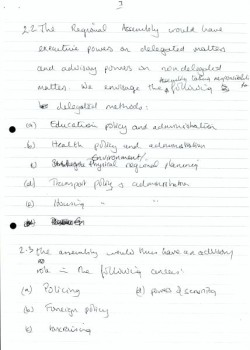 3
2.2 The Regional Assembly would have
executive powers on delegated matters
and advisory powers on non delegated
assembly taking responsibility for
matters. We envisage the following
delegated methods:
(a) Education policy and administration
(b) Health policy and administration
environment/
(c) Physical regional planning
(d) Transport policy & administration
(e) Housing " "
2.3 The assembly would thus have an advisory
role in the following areas:
(a) Policing (d) power & security
(b) Foreign policy
(c)